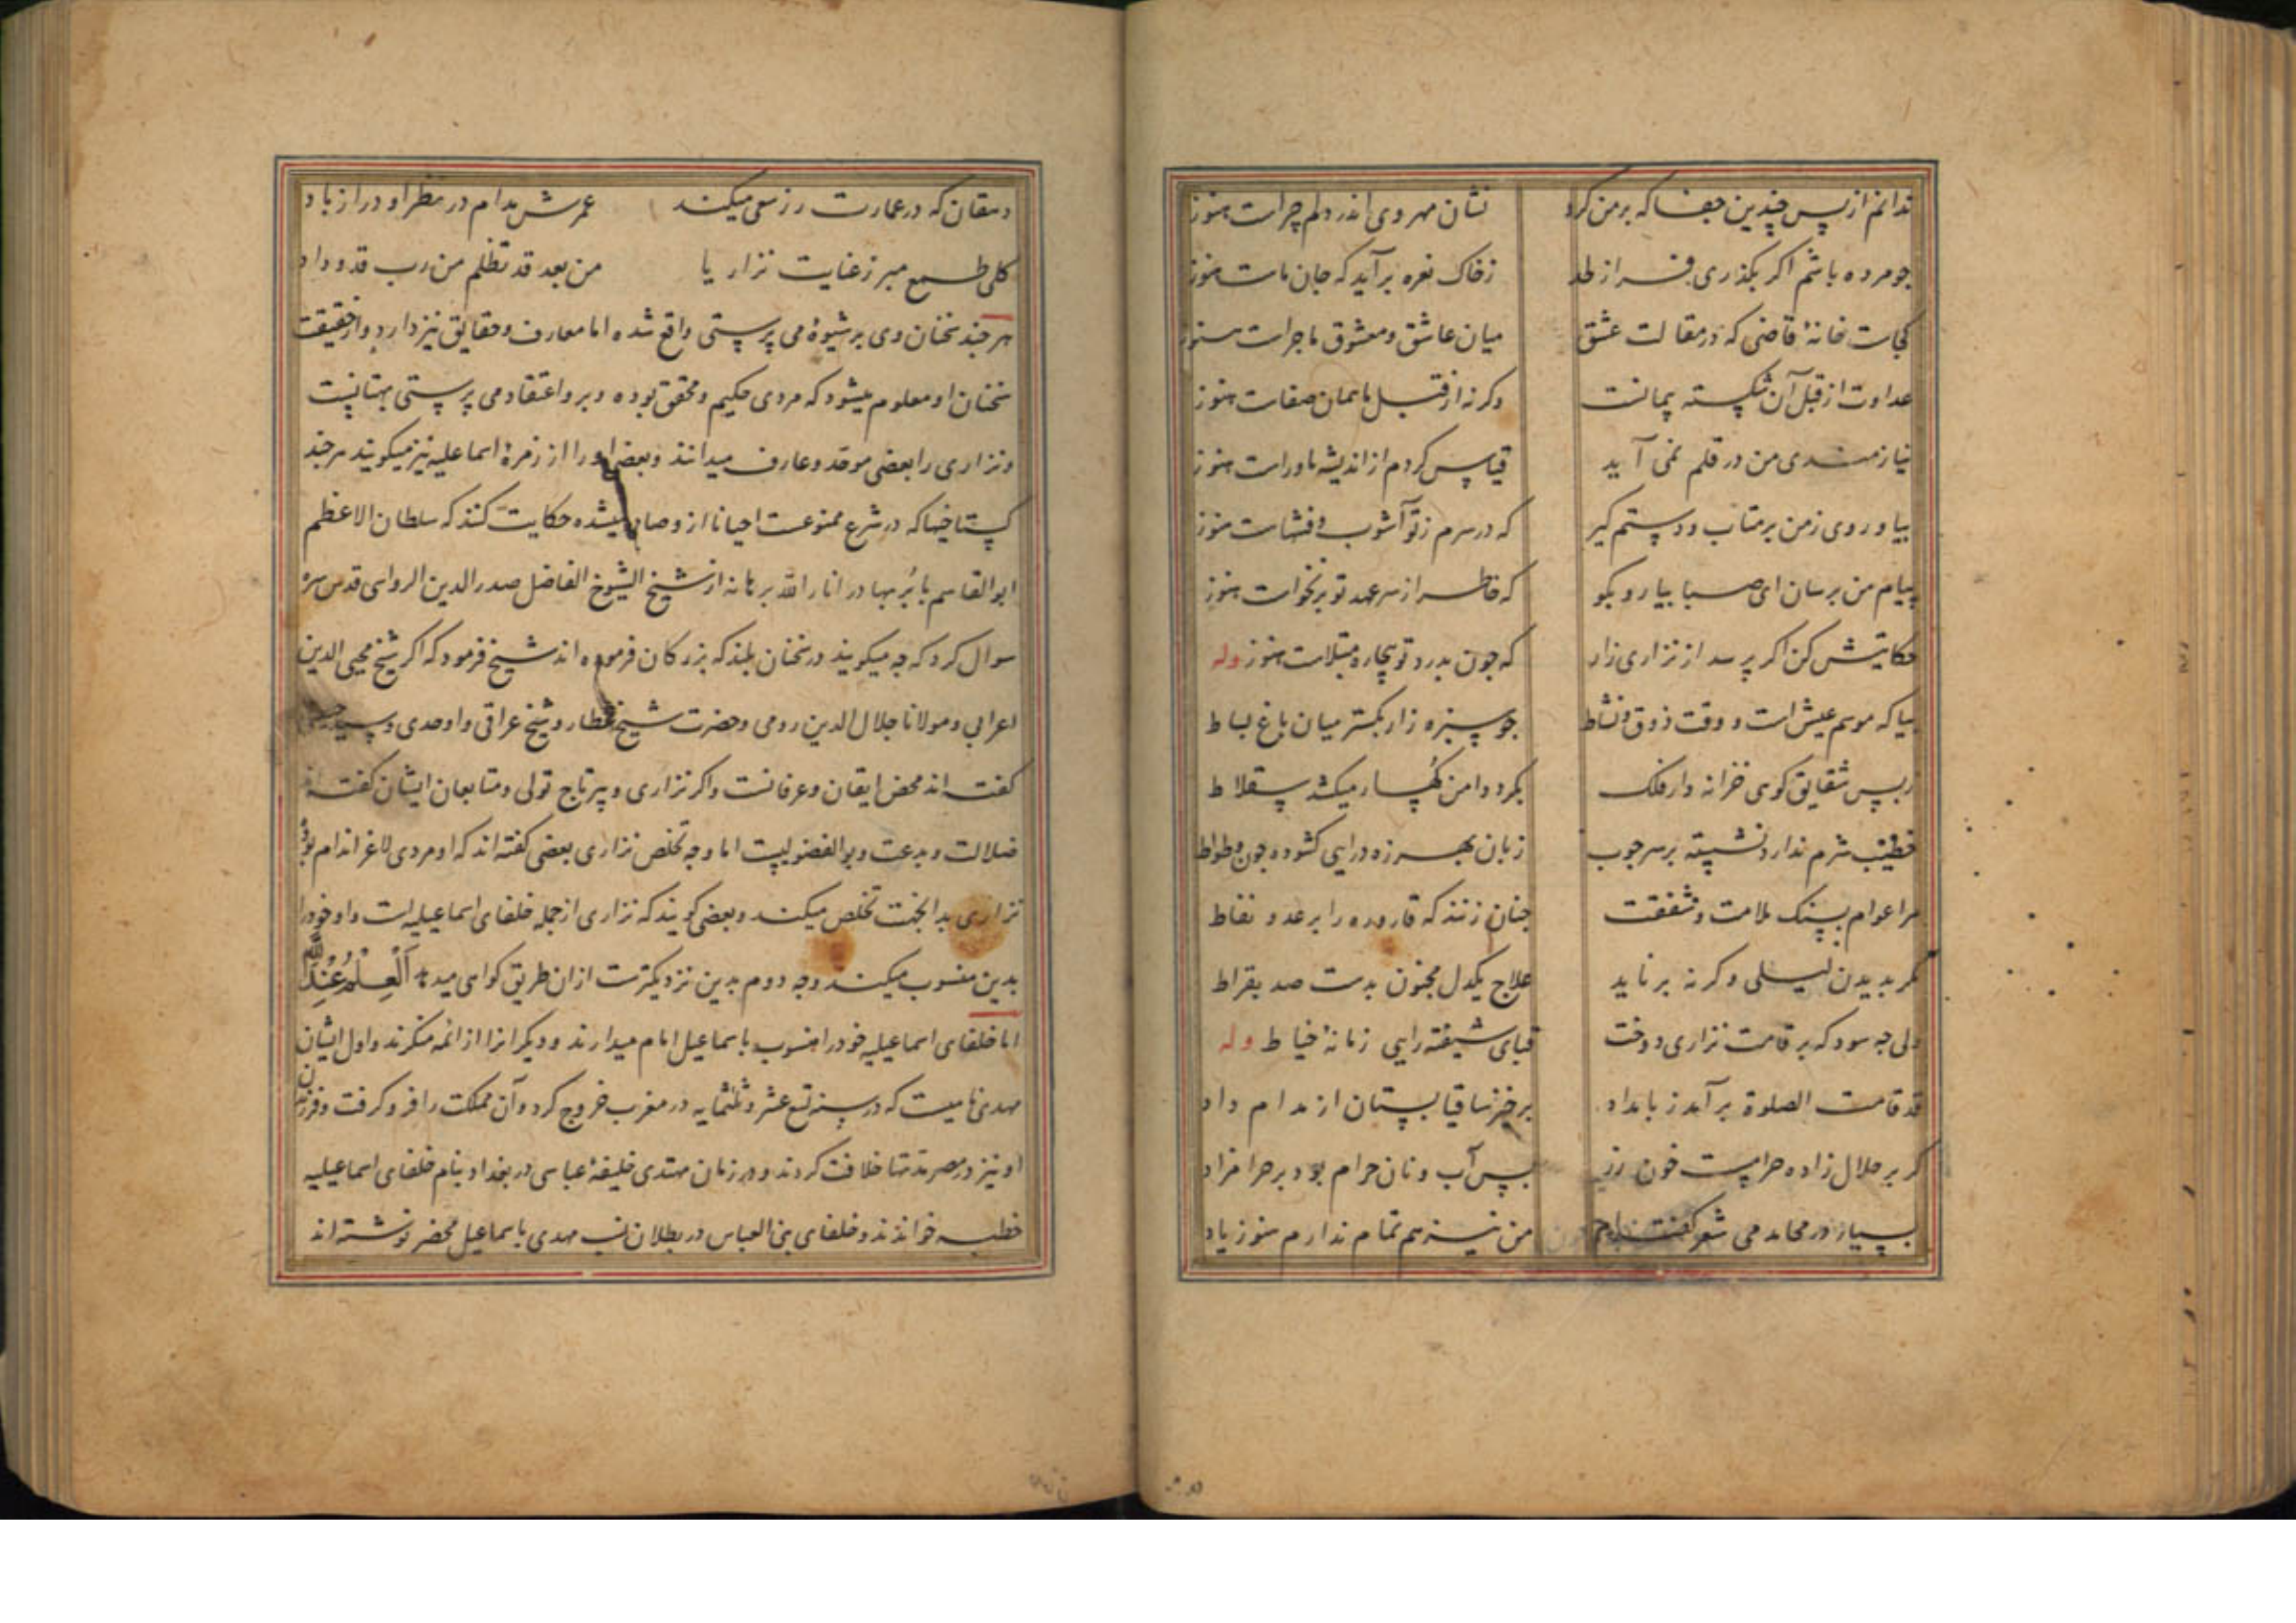 ندانم از پس چندین جفا که بر من کرد نشان مهر وی اندر دلم چراست هنوز
چو مرده باشم اکر بکذری بر از لحد ز خاک نعره برآید که جان ماست هنوز
کجاست خانهٔ قاضی که در مقالت عشق میان عاشق و معشوق ماجراست هنوز
عداوت از قبل آن شکسته پیمانست وکرنه از قبل ما همان صفاست هنوز
نیازمندی من در قلم نمی آید قیاس کردم از اندیشه ماوراست هنوز
بیا و روی ز من برمتاب و دستم کیر که در سرم ز تو آشوب و فتنهاست هنوز
پیام من برسان ای صبا بیار و بکو که خاطر از سر عهد تو برنخواست هنوز
حکایتش کن اکر پرسد از نزاری زار که چون بدرد تو بیچاره مبتلاست هنوز وله
بیا که موسم عیش است و وقت ذوق و نشاط چو سبزه زار بکستر میان باغ بساط
ز بس شقایق کوی خزانه دار فلک بکرد دامن کهسار میکشد سقلاط
خطیب شرم ندارد نشسته بر سر چوب زبان بهرزه درایی کشوده چون وطواط
مرا عوام بسنک ملامت و شفقت چنان زنند که قاروره را برعد و نفاط
مکر بدیدن لیلی وکرنه برناید علاج یکدل مجنون بدست صد بقراط
ولی چه سود که بر قامت نزاری دوخت قبای شیفته رایی زمانهٔ خیاط وله
قد قامت الصلوة برآمد ز بامداد برخیز ساقیا بستان از مدام داد
کر بر حلال زاده حرامست خون رز پس آب و نان حرام بود بر حرامزاد
بسیار در محامد می شعر کفته‌ام من نیز هم تمام ندارم هنوز یاد
دهقان که در عمارت رز سعی میکند عمرش مدام در مطر او دراز باد
کلی طمع مبر ز عنایت نزاریا من بعد قد تظلم من رب قد وداد
هر چند سخنان وی بر شیوهٔ می پرستی واقع شده اما معارف و حقایق نیز دارد و از حقیقت
سخنان او معلوم میشود که مردی حکیم و محقق بوده و برو اعتقاد می پرستی بهتانیست
و نزاری را بعضی موحد و عارف میدانند و بعضی او را از زمرهٔ اسماعلیه نیز میکویند هر چند
کستاخیها که در شرع ممنوعست احیانا از و صادر میشده حکایت کنند که سلطان الاعظم
ابوالقاسم بابر بهادر انار الله برهانه از شیخ الشیوخ الفاضل صدر الدین الرواسی قدس سره
سوال کرد که چه میکویند در سخنان بلند که بزرکان فرموده اند شیخ فرمود که اکر شیخ محیی الدین
اعرابی و مولانا جلال الدین رومی و حضرت شیخ عطار و شیخ عراقی و اوحدی و سید حسینی
کفته اند محض ایقان و عرفانست و اکر نزاری و پیر تاج تولی و متابعان ایشان کفته اند
ضلالت و بدعت و بوالفضولیست اما وجه تخلص نزاری بعضی کفته اند که او مردی لاغر اندام بوده
نزاری بدانجهت تخلص میکند و بعضی کویند که نزاری از جمله خلفای اسماعیلیه است و او خود را
بدین منسوب میکند و وجه دوم بدین نزدیکترست از ان طریق کواهی میدهد اَلْعِلْمُ عِنْدَ اللّٰه
اما خلفای اسماعیلیه خود را منسوب باسماعیل امام میدارند و دیکرانرا از ائمه منکرند و اول ایشان
مهدی نامیست که در سنه تسع عشر و ثلثمایه در مغرب خروج کرد و آن مملکت را فرو کرفت و فرزندان
او نیز در مصر مدتها خلافت کردند و در زمان مهتدی خلیفهٔ عباسی در بغداد بنام خلفای اسماعیلیه
خطبه خواندند و خلفای بنی العباس در بطلان نسب مهدی باسماعیل محضر نوشته اند